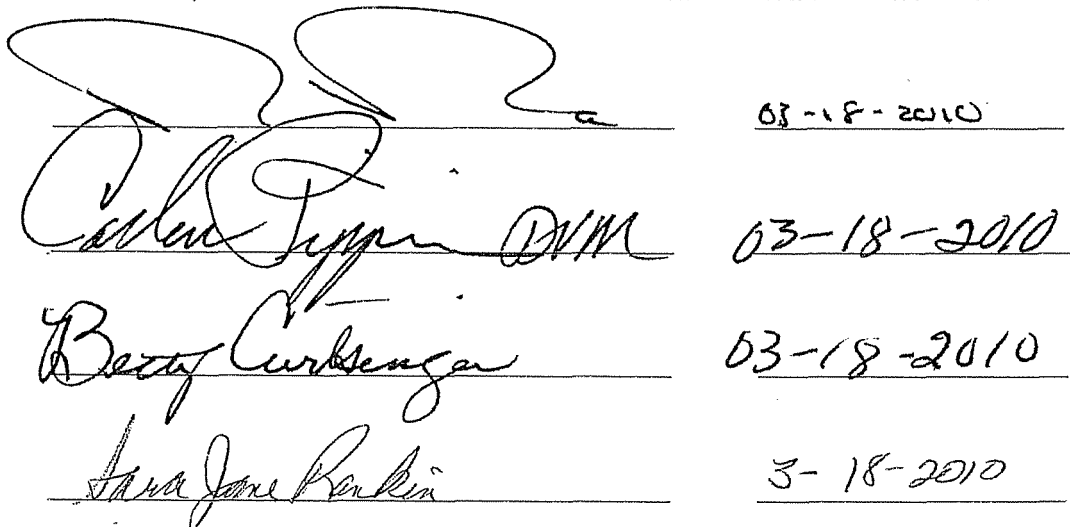 03-18-2010
Pippin DVM 03-18-2010
Betty Curtsinger 03-18-2010
Sara Jane Rankin 3-18-2010